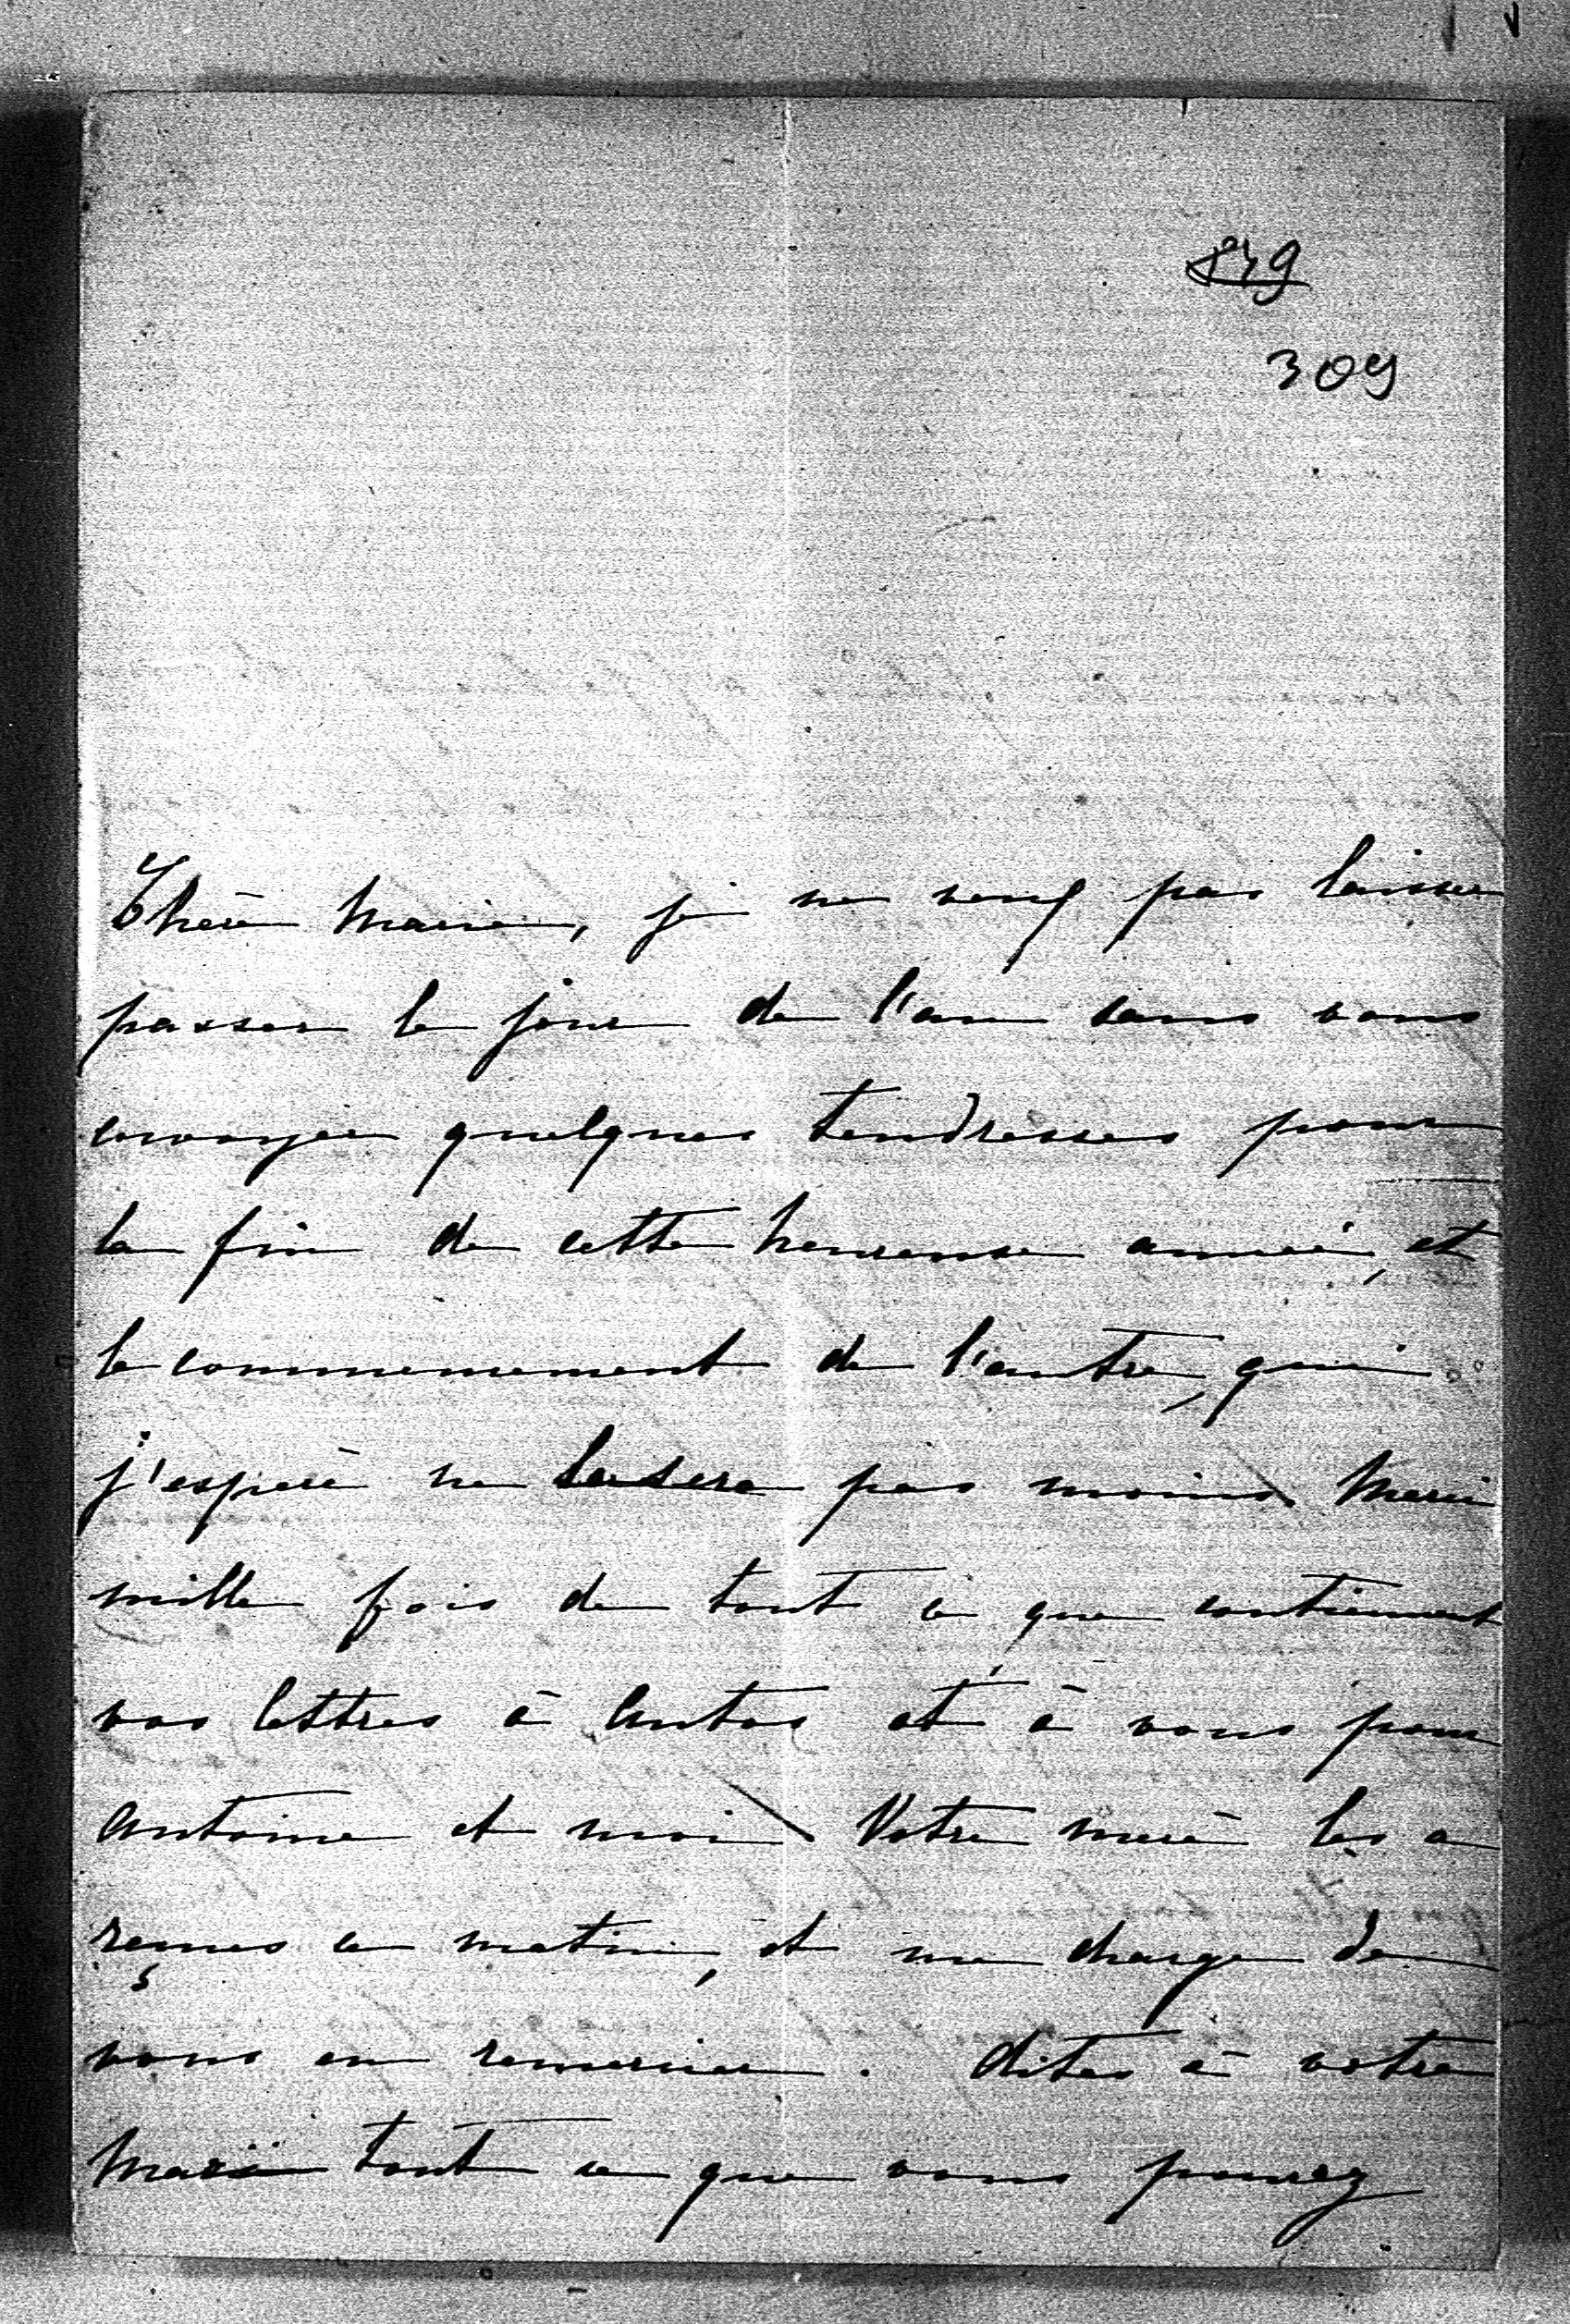 849
309
Chère Marie, je ne veux pas laisser
passer le jour de l'an sans vous
envoyer quelques tendresses pour
la fin de cette heureuse année, et
le commencement de l'autre, qui
j'espère ne le sera pas moins. Merci
mille fois de tout ce que contiennent
vos lettres à Antos et à vous pour
Antoine et moi. Votre mère les a
remis ce matin, et me charge de
vous en remercier. Dites à votre
Mari tout ce que vous pourrez